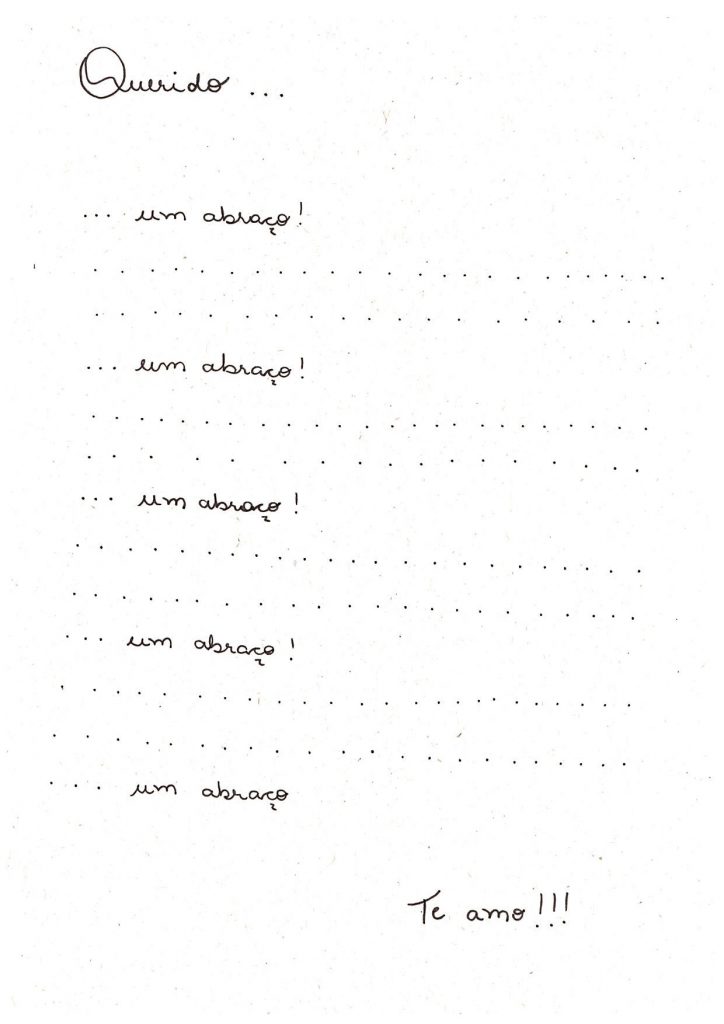 Querido ...
... um abraço!
. . . . . . . . . . . . . . . . . . . . . . . .
. . . . . . . . . . . . . . . . . .
... um abraço!
. . . . . . . . . . . . . . . . . . . . .
. . . . . . . . . . . . . . . .
... um abraço!
. . . . . . . . . . . . . . . . . . . .
. . . . . . . . . . . . . . . . . . . . .
... um abraço!
. . . . . . . . . . . . . . . . . . . . . .
. . . . . . . . . . . . . . . . . . . .
... um abraço
Te amo!!!